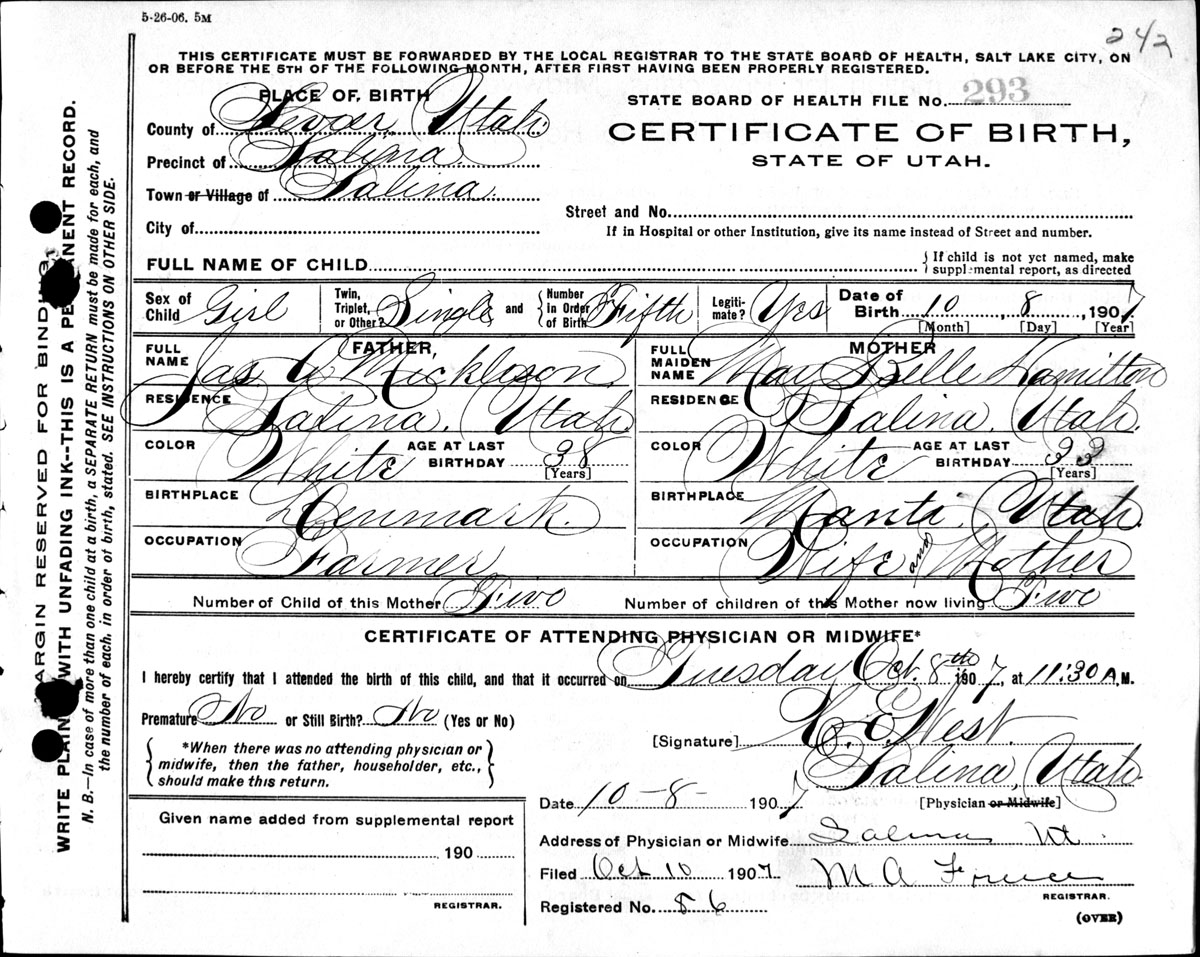 5-26-06. 5M
242
THIS CERTIFICATE MUST BE FORWARDED BY THE LOCAL REGISTRAR TO THE STATE BOARD OF HEALTH, SALT LAKE CITY, ON
OR BEFORE THE 5TH OF THE FOLLOWING MONTH, AFTER FIRST HAVING BEEN PROPERLY REGISTERED.
PLACE OF BIRTH
STATE BOARD OF HEALTH FILE No. 293
County of Sevier, Utah.
CERTIFICATE OF BIRTH,
Precinct of Salina
STATE OF UTAH.
Town or Village of Salina
Street and No.
City of
If in Hospital or other Institution, give its name instead of Street and number.
FULL NAME OF CHILD
{ If child is not yet named, make
supplemental report, as directed
Sex of Child Girl
Twin, Triplet, or Other? Single and { Number in Order of Birth Fifth
Legiti-mate? Yes
Date of Birth 10, 8, 1907
[Month] [Day] [Year]
FATHER,
FULL NAME Jas C Mickleson.
RESIDENCE Salina, Utah.
COLOR White AGE AT LAST BIRTHDAY 38 [Years]
BIRTHPLACE Denmark.
OCCUPATION Farmer
MOTHER
FULL MAIDEN NAME May Belle Hamilton
RESIDENCE Salina, Utah.
COLOR White AGE AT LAST BIRTHDAY 33 [Years]
BIRTHPLACE Manti, Utah.
OCCUPATION Wife and Mother
Number of Child of this Mother Five Number of children of this Mother now living Five
CERTIFICATE OF ATTENDING PHYSICIAN OR MIDWIFE*
I hereby certify that I attended the birth of this child, and that it occurred on Tuesday Oct. 8th 1907, at 11:30 A.M.
Premature No or Still Birth? No (Yes or No)
[Signature] E. West.
{ *When there was no attending physician or
midwife, then the father, householder, etc.,
should make this return. }
Salina, Utah.
Date 10-8- 1907 [Physician or Midwife]
Given name added from supplemental report
190
REGISTRAR.
Address of Physician or Midwife Salina Ut.
Filed Oct 10 1907. M A
REGISTRAR.
Registered No. 86
(OVER)
MARGIN RESERVED FOR BINDING
WRITE PLAINLY WITH UNFADING INK--THIS IS A PERMANENT RECORD.
N. B.—In case of more than one child at a birth, a SEPARATE RETURN must be made for each, and
the number of each, in order of birth, stated. SEE INSTRUCTIONS ON OTHER SIDE.